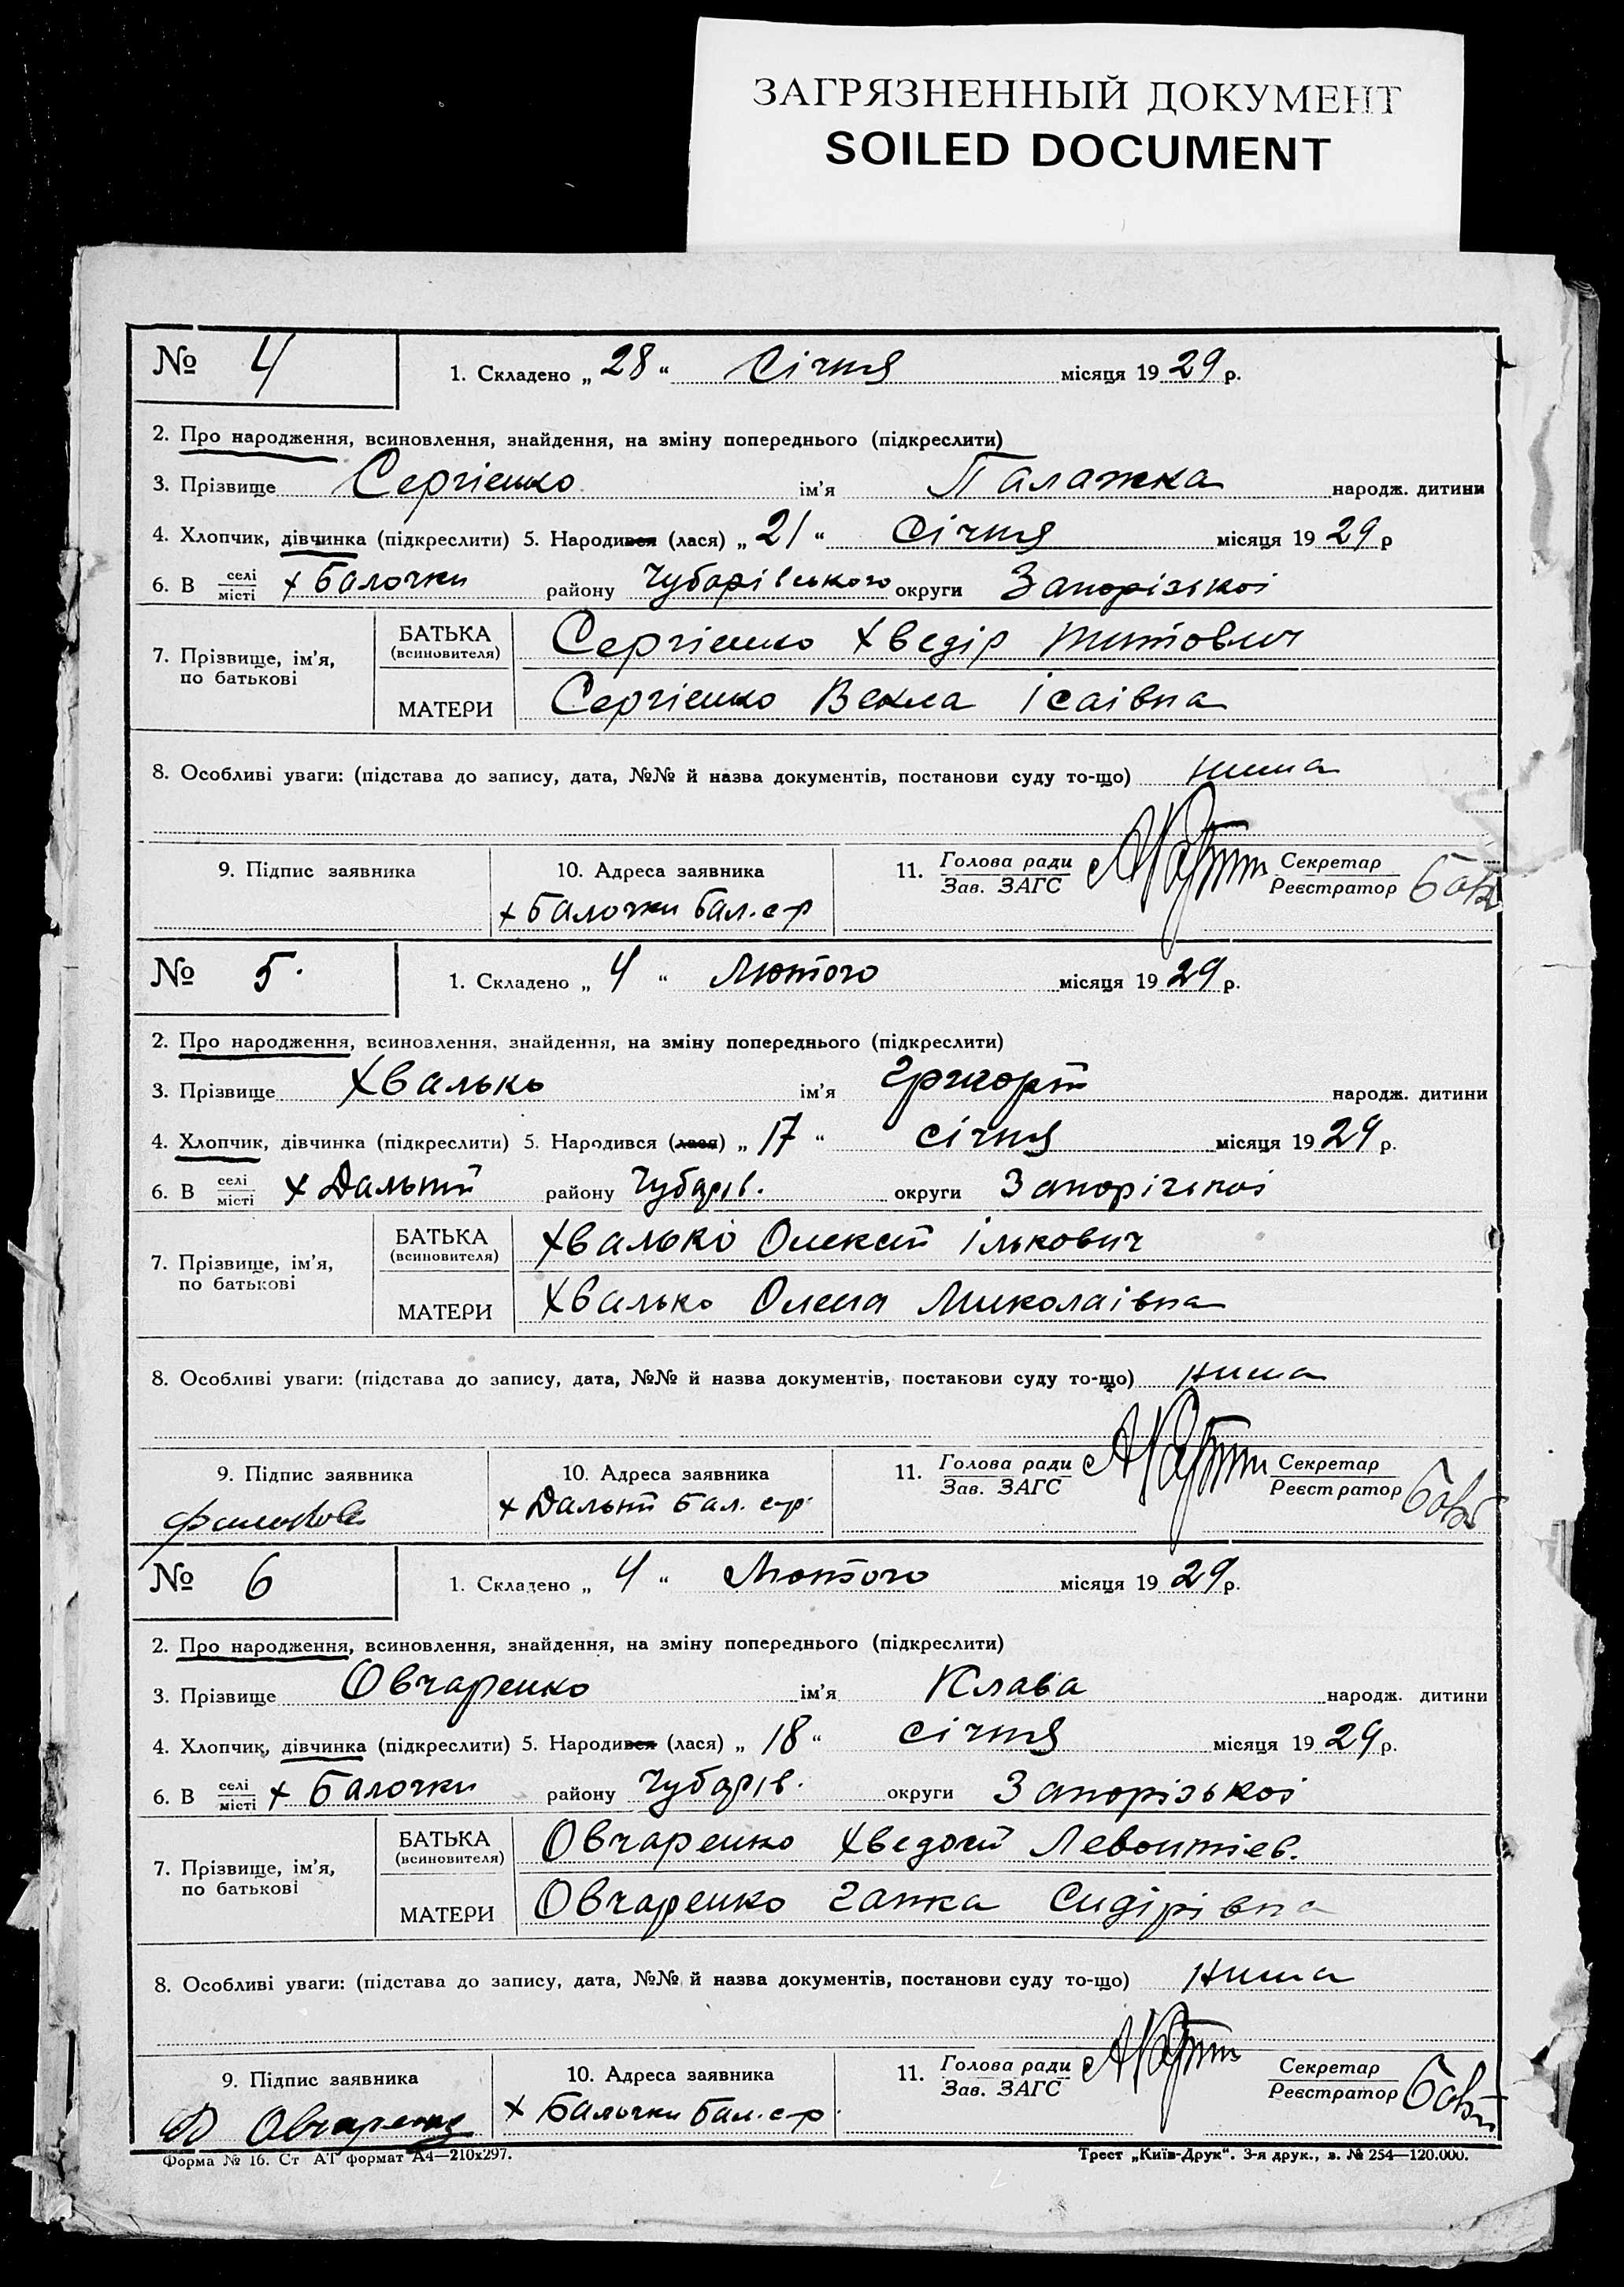 ЗАГРЯЗНЕННЫЙ ДОКУМЕНТ
SOILED DOCUMENT
№ 4 1. Складено „ 28 “ Січня місяця 19 29 р.
2. Про народження, всиновлення, знайдення, на зміну попереднього (підкреслити)
3. Прізвище Сергієнко ім'я Палажка народж. дитини
4. Хлопчик, дівчинка (підкреслити) 5. Народився (лася) „ 21 “ Січня місяця 19 29 р
6. В селі місті х Балочки району Чубарівського округи Запорізької
7. Прізвище, ім'я, по батькові
БАТЬКА (всиновителя) Сергієнко Хведір Титович
МАТЕРИ Сергієнко Векла Ісаівна
8. Особливі уваги: (підстава до запису, дата, №№ й назва документів, постанови суду то-що) нима
9. Підпис заявника 10. Адреса заявника 11. Голова ради Зав. ЗАГС Секретар Реєстратор
х Балочки Бал. с-р
№ 5. 1. Складено „ 4 “ Лютого місяця 19 29 р.
2. Про народження, всиновлення, знайдення, на зміну попереднього (підкреслити)
3. Прізвище Хвалько ім'я Григорій народж. дитини
4. Хлопчик, дівчинка (підкреслити) 5. Народився (лася) „ 17 “ січня місяця 19 29 р.
6. В селі місті х Дальній району Чубарів. округи Запоріzької
7. Прізвище, ім'я, по батькові
БАТЬКА (всиновителя) Хвалько Олексій Ількович
МАТЕРИ Хвалько Олена Миколаівна
8. Особливі уваги: (підстава до запису, дата, №№ й назва документів, постанови суду то-що) нима
9. Підпис заявника 10. Адреса заявника 11. Голова ради Зав. ЗАГС Секретар Реєстратор
х Дальній Бал. с-р
№ 6 1. Складено „ 4 “ Лютого місяця 19 29 р.
2. Про народження, всиновлення, знайдення, на зміну попереднього (підкреслити)
3. Прізвище Овчаренко ім'я Клава народж. дитини
4. Хлопчик, дівчинка (підкреслити) 5. Народився (лася) „ 18 “ січня місяця 19 29 р.
6. В селі місті х Балочки району Чубарів. округи Запорізької
7. Прізвище, ім'я, по батькові
БАТЬКА (всиновителя) Овчаренко Хведосій Левонтієв.
МАТЕРИ Овчаренко Гапка Сидірівна
8. Особливі уваги: (підстава до запису, дата, №№ й назва документів, постанови суду то-що) нима
9. Підпис заявника 10. Адреса заявника 11. Голова ради Зав. ЗАГС Секретар Реєстратор
Овчаренко х Балочки Бал. с-р.
Форма № 16. Ст АТ формат А4—210х297. Трест „Київ-Друк“. 3-я друк., з. № 254—120.000.